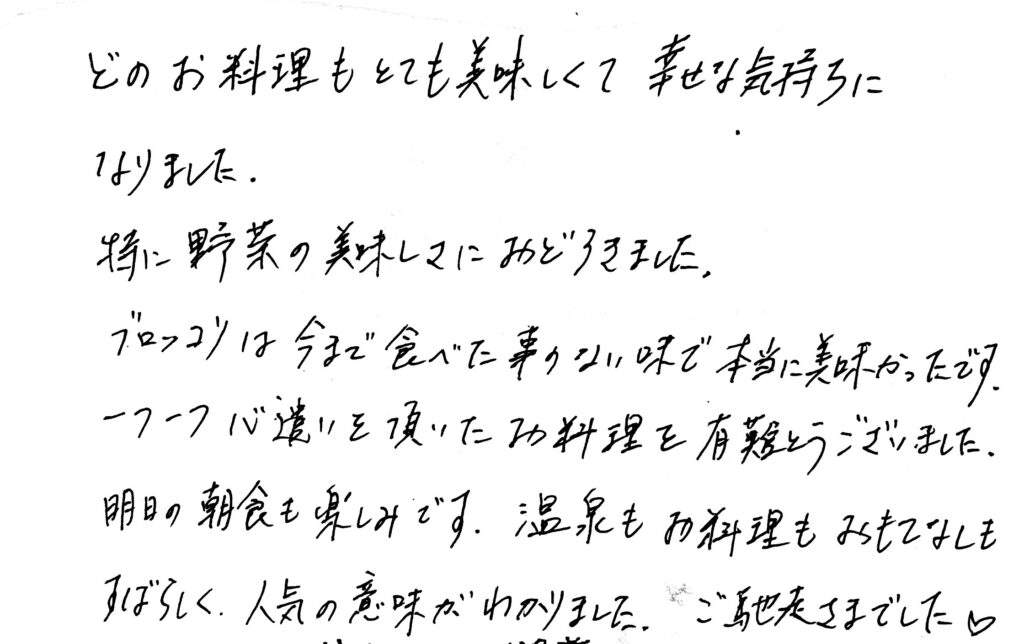 どのお料理もとても美味しくて 幸せな気持ちに
なりました.
特に野菜の美味しさにおどろきました.
ブロッコリは今まで食べた事のない味で本当に美味かったです.
一つ一つ心遣いを頂いたお料理を有難とうございました.
明日の朝食も楽しみです. 温泉もお料理もおもてなしも
すばらしく. 人気の意味がわかりました. ご馳走さまでした♡